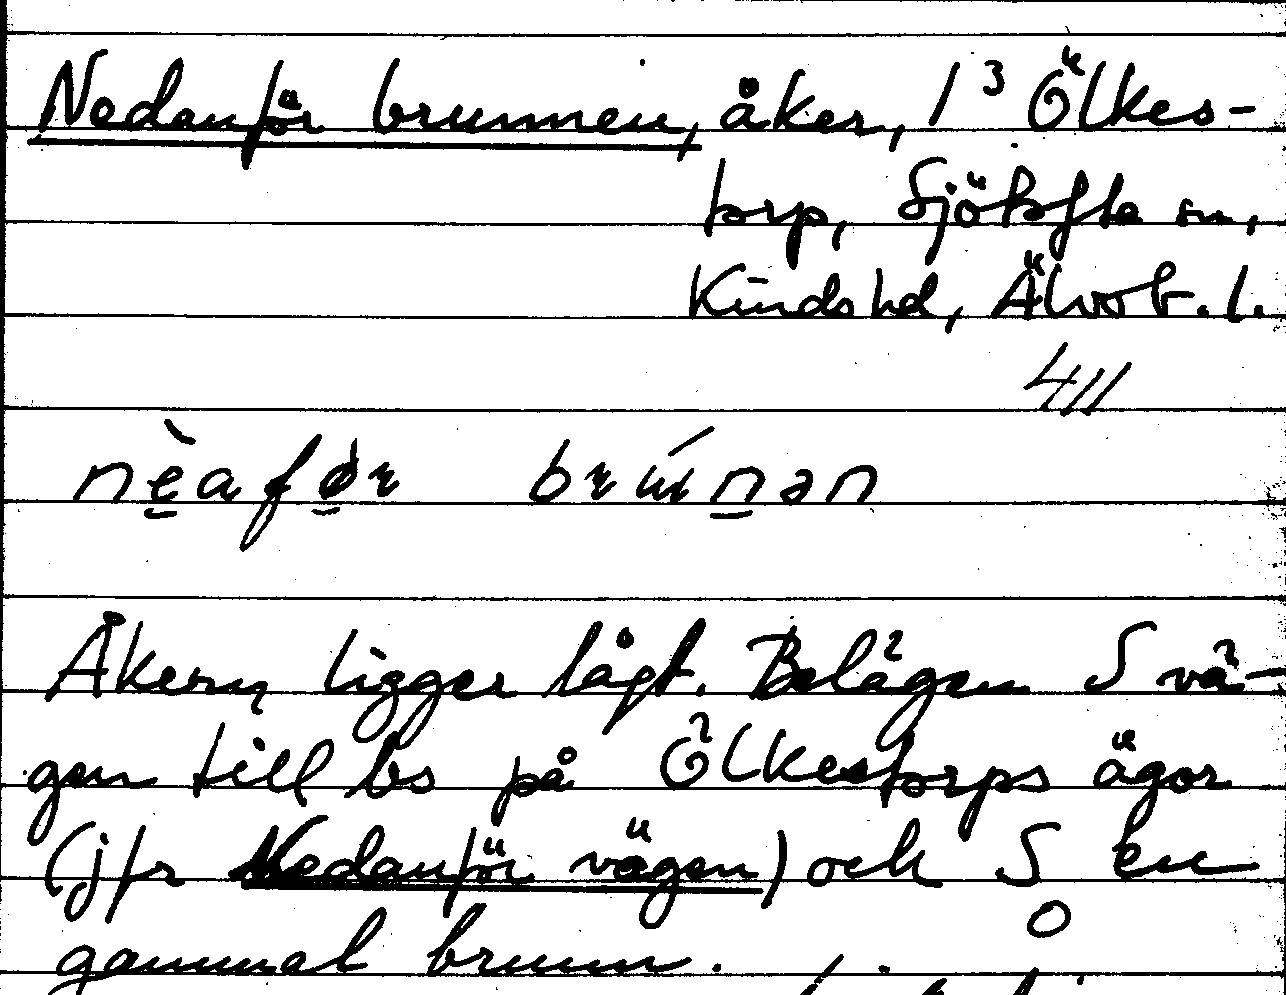 Nedanför brunnen, åker, 1³ Ölkes-
torp, Sjötofta sn,
Kinds hd, Älvsb. l.
4//
nèafør brúnən
Åkern ligger lågt. Belägen S vä-
gen till bs på Ölkestorps ägor
(jfr Nedanför vägen) och S en
gammal brunn.